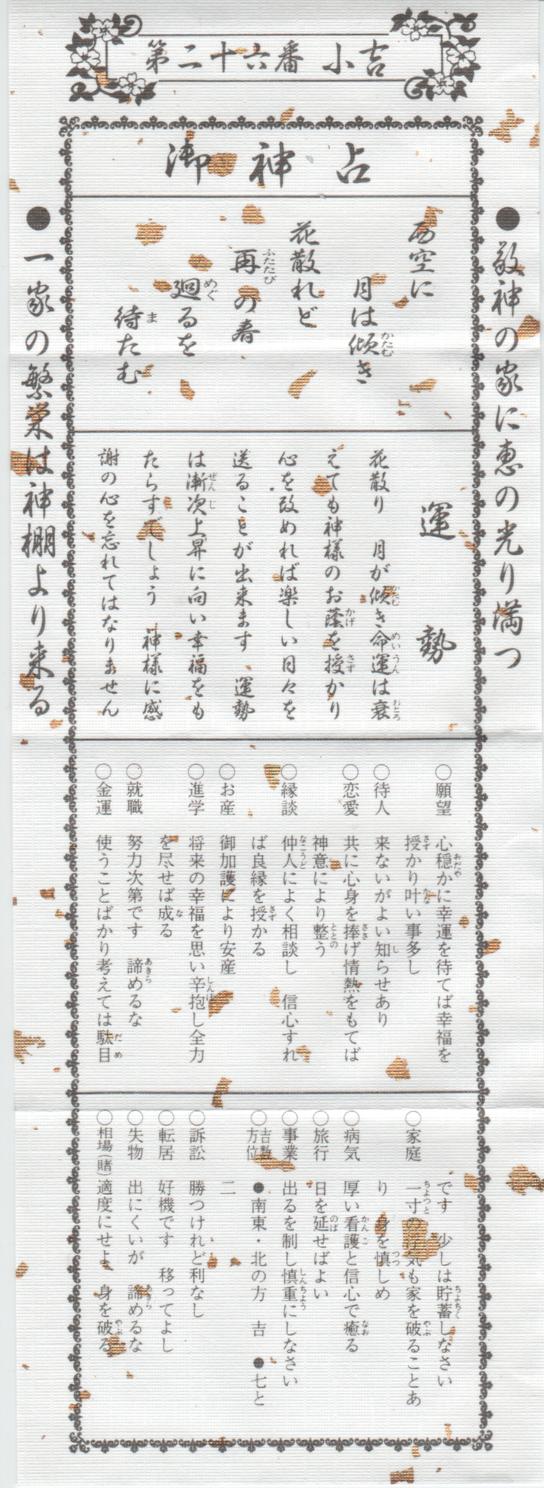 第二十六番 小吉
御神占
●敬神の家に恵の光り満つ
高空に
月は傾き
花散れど
再の春
廻るを
待たむ
運勢
花散り 月が傾き命運は衰
えても神様のお蔭を授かり
心を改めれば楽しい日々を
送ることが出来ます 運勢
は漸次上昇に向い幸福をも
たらすでしょう 神様に感
謝の心を忘れてはなりません
○願望 心穏かに幸運を待てば幸福を
授かり叶い事多し
○待人 来ないがよい知らせあり
○恋愛 共に心身を捧げ情熱をもてば
神意により整う
○縁談 仲人によく相談し 信心すれ
ば良縁を授かる
○お産 御加護により安産
○進学 将来の幸福を思い辛抱し全力
を尽せば成る
○就職 努力次第です 諦めるな
○金運 使うことばかり考えては駄目
です 少しは貯蓄しなさい
○家庭 一寸の浮気も家を破ることあ
り 身を慎しめ
○病気 厚い看護と信心で癒る
○旅行 日を延せばよい
○事業 出るを制し慎重にしなさい
○吉数方位 ●南東・北の方 吉 ●七と
二
○訴訟 勝つけれど利なし
○転居 好機です 移ってよし
○失物 出にくいが 諦めるな
○相場(賭) 適度にせよ 身を破る
●一家の繁栄は神棚より来る